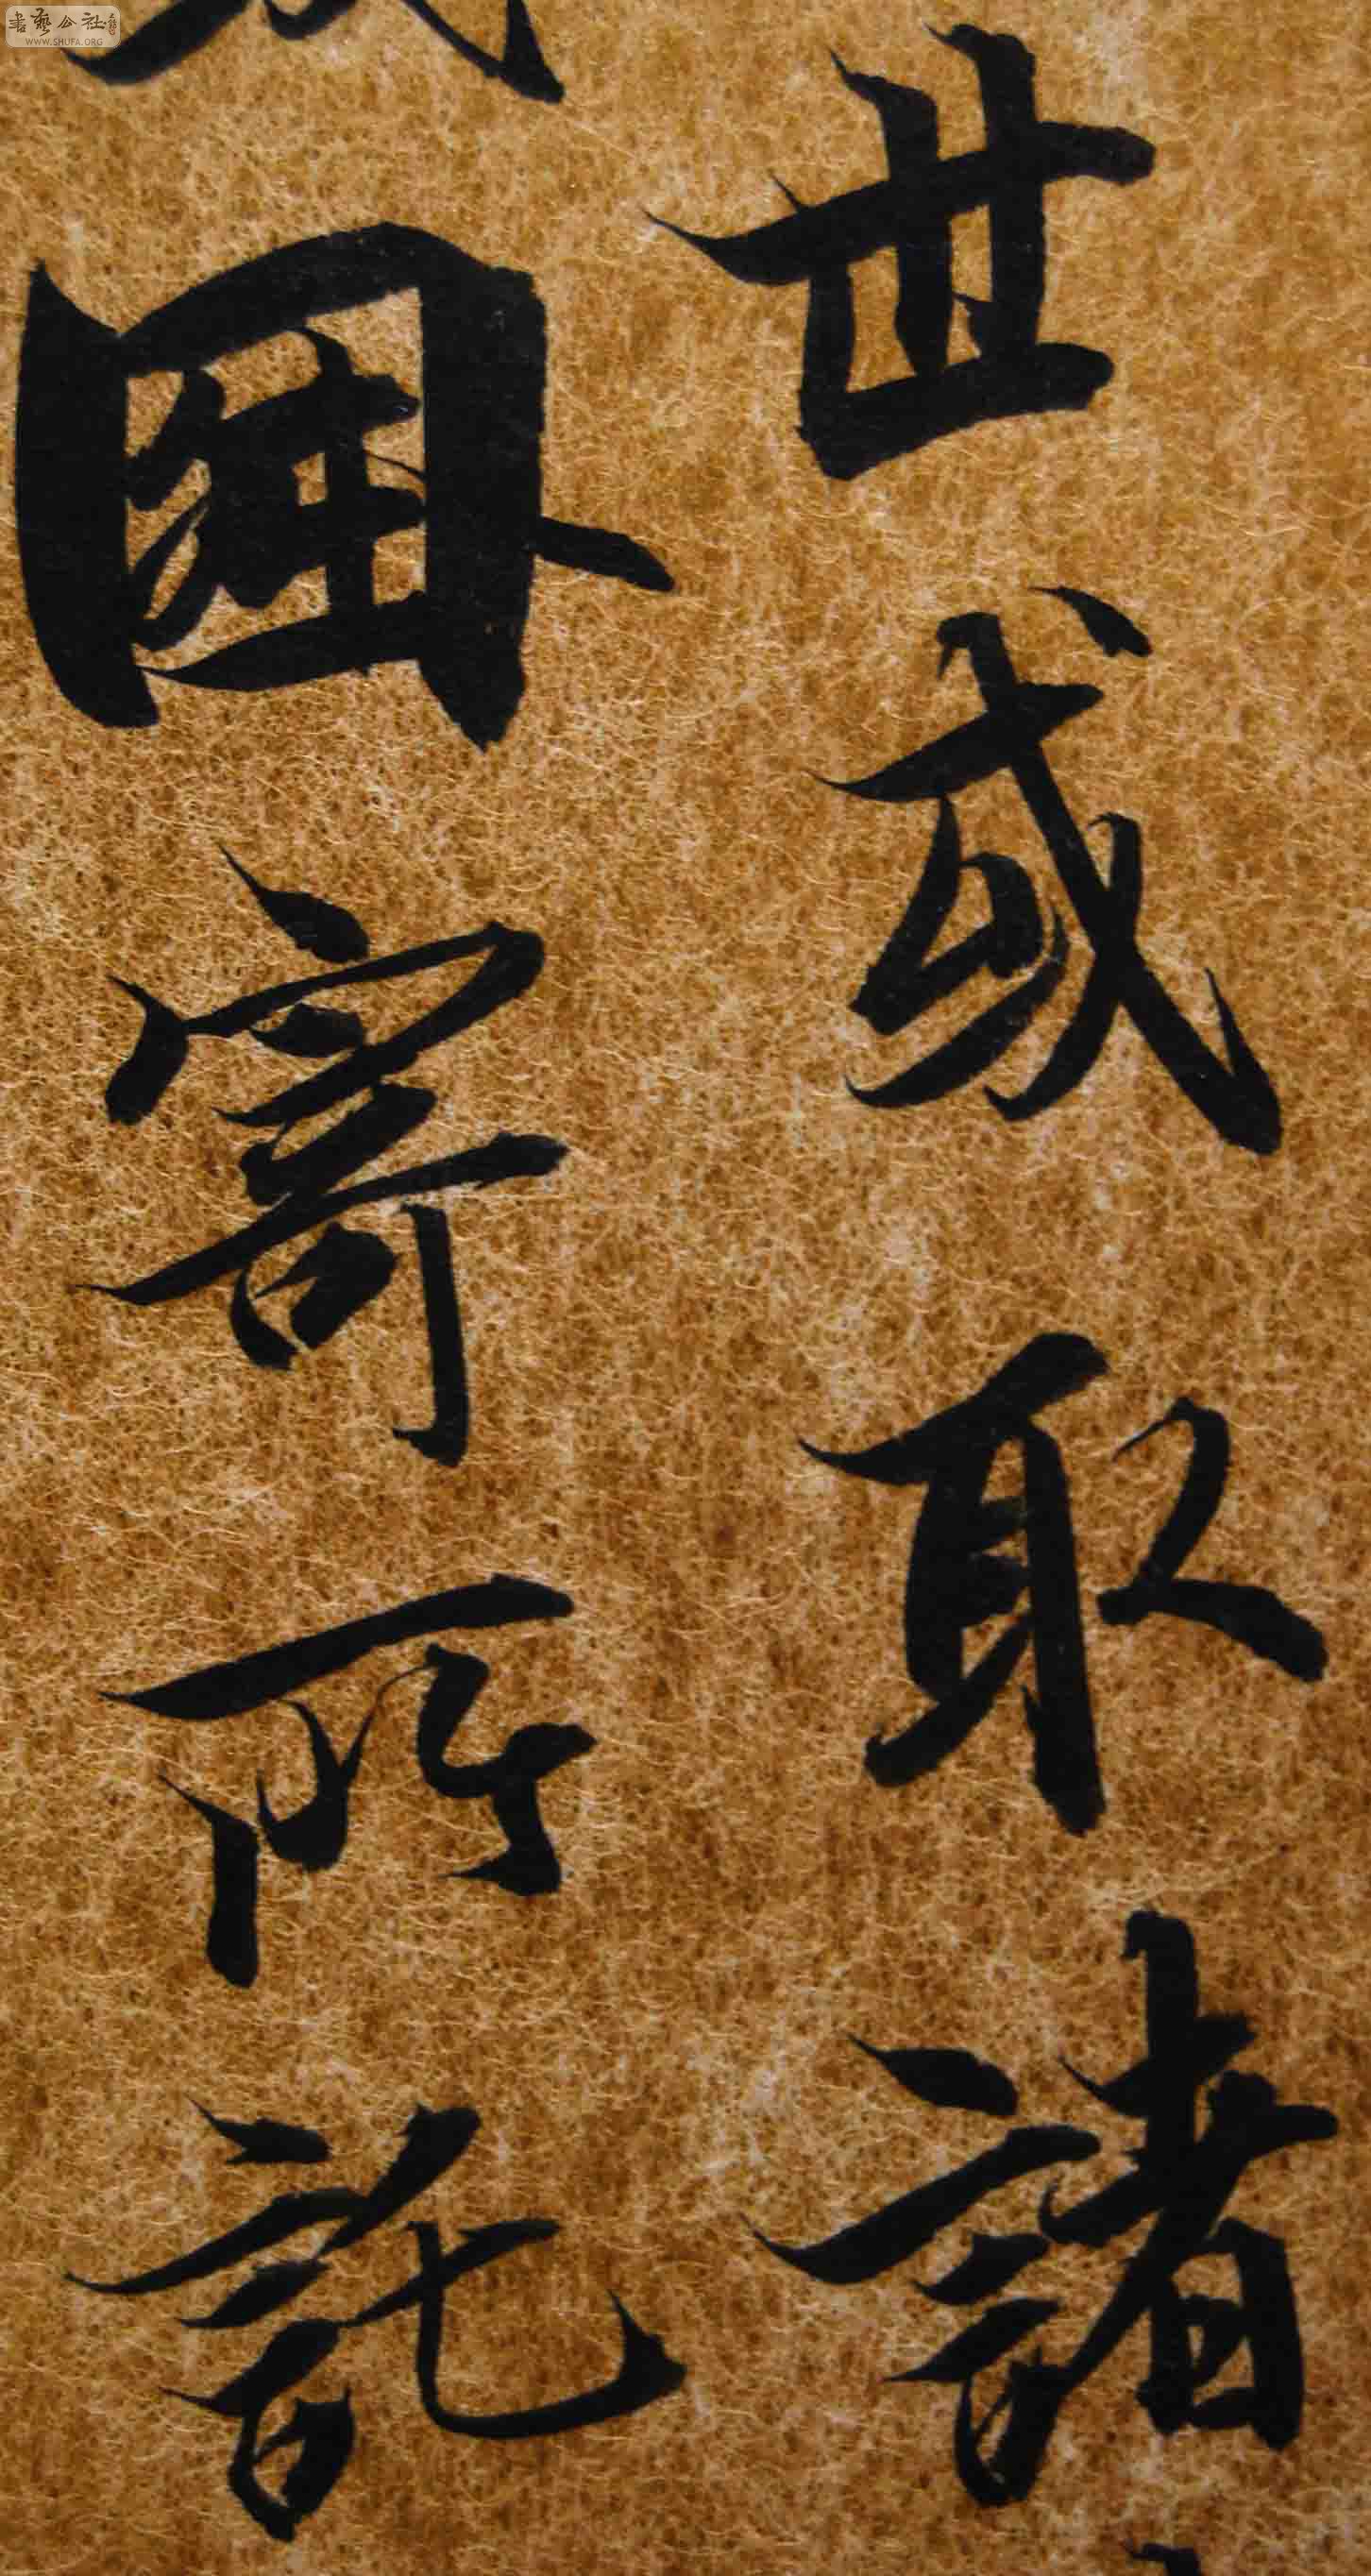 世或取諸
因寄所託
書藝公社
WWW.SHUFA.ORG